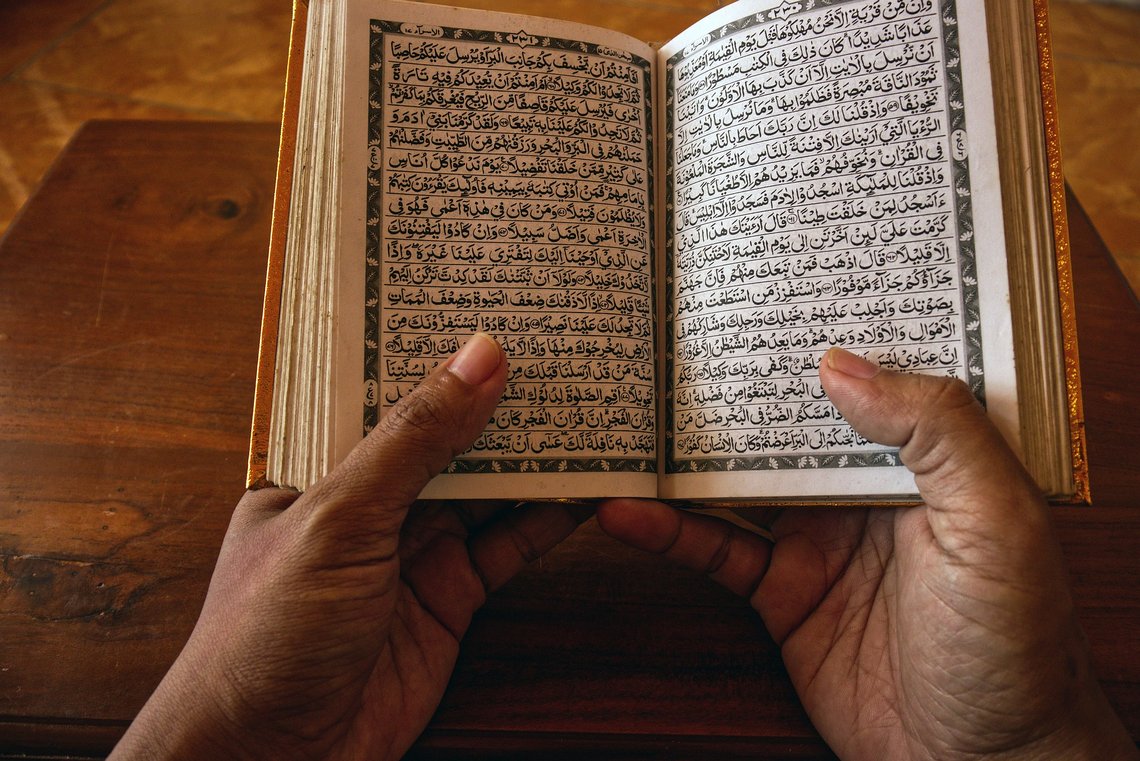 ٣٣٠
وَاِنْ مِّنْ قَرْيَةٍ اِلَّا نَحْنُ مُهْلِكُوْهَا قَبْلَ يَوْمِ الْقِيٰمَةِ اَوْ مُعَذِّبُوْهَا
عَذَابًا شَدِيْدًا ۗ كَانَ ذٰلِكَ فِى الْكِتٰبِ مَسْطُوْرًا ﴿٥٨﴾ وَمَا مَنَعَنَآ
اَنْ نُّرْسِلَ بِالْاٰيٰتِ اِلَّآ اَنْ كَذَّبَ بِهَا الْاَوَّلُوْنَ ۗ وَاٰتَيْنَا
ثَمُوْدَ النَّاقَةَ مُبْصِرَةً فَظَلَمُوْا بِهَا ۗ وَمَا نُرْسِلُ بِالْاٰيٰتِ اِلَّا
تَخْوِيْفًا ﴿٥٩﴾ وَاِذْ قُلْنَا لَكَ اِنَّ رَبَّكَ اَحَاطَ بِالنَّاسِ ۗ وَمَا جَعَلْنَا
الرُّءْيَا الَّتِيْٓ اَرَيْنٰكَ اِلَّا فِتْنَةً لِّلنَّاسِ وَالشَّجَرَةَ الْمَلْعُوْنَةَ
فِى الْقُرْاٰنِ ۗ وَنُخَوِّفُهُمْ ۙ فَمَا يَزِيْدُهُمْ اِلَّا طُغْيَانًا كَبِيْرًا ﴿٦٠﴾
وَاِذْ قُلْنَا لِلْمَلٰٓئِكَةِ اسْجُدُوْا لِاٰدَمَ فَسَجَدُوْٓا اِلَّآ اِبْلِيْسَ ۗ قَالَ
ءَاَسْجُدُ لِمَنْ خَلَقْتَ طِيْنًا ﴿٦١﴾ قَالَ اَرَءَيْتَكَ هٰذَا الَّذِيْ
كَرَّمْتَ عَلَيَّ لَئِنْ اَخَّرْتَنِ اِلٰى يَوْمِ الْقِيٰمَةِ لَاَحْتَنِكَنَّ ذُرِّيَّتَهٗٓ
اِلَّا قَلِيْلًا ﴿٦٢﴾ قَالَ اذْهَبْ فَمَنْ تَبِعَكَ مِنْهُمْ فَاِنَّ جَهَنَّمَ
جَزَآؤُكُمْ جَزَآءً مَّوْفُوْرًا ﴿٦٣﴾ وَاسْتَفْزِزْ مَنِ اسْتَطَعْتَ مِنْهُمْ
بِصَوْتِكَ وَاَجْلِبْ عَلَيْهِمْ بِخَيْلِكَ وَرَجِلِكَ وَشَارِكْهُمْ فِى
الْاَمْوَالِ وَالْاَوْلَادِ وَعِدْهُمْ ۗ وَمَا يَعِدُهُمُ الشَّيْطٰنُ اِلَّا غُرُوْرًا ﴿٦٤﴾
اِنَّ عِبَادِيْ لَيْسَ سُلْطٰنٌ ۗ وَكَفٰى بِرَبِّكَ وَكِيْلًا ﴿٦٥﴾ رَبُّكُمُ
فِى الْبَحْرِ لِتَبْتَغُوْا مِنْ فَضْلِهٖ ۗ اِنَّهٗ
مَسَّكُمُ الضُّرُّ فِى الْبَحْرِ ضَلَّ مَنْ
نَجّٰىكُمْ اِلَى الْبَرِّ اَعْرَضْتُمْ ۗ وَكَانَ الْاِنْسَانُ كَفُوْرًا ﴿٦٧﴾
٣٣١
الاسراء ١٧
اَفَاَمِنْتُمْ اَنْ يَّخْسِفَ بِكُمْ جَانِبَ الْبَرِّ اَوْ يُرْسِلَ عَلَيْكُمْ حَاصِبًا
ثُمَّ لَا تَجِدُوْا لَكُمْ وَكِيْلًا ﴿٦٨﴾ اَمْ اَمِنْتُمْ اَنْ يُّعِيْدَكُمْ فِيْهِ تَارَةً
اُخْرٰى فَيُرْسِلَ عَلَيْكُمْ قَاصِفًا مِّنَ الرِّيْحِ فَيُغْرِقَكُمْ بِمَا كَفَرْتُمْ
ثُمَّ لَا تَجِدُوْا لَكُمْ عَلَيْنَا بِهٖ تَبِيْعًا ﴿٦٩﴾ وَلَقَدْ كَرَّمْنَا بَنِيْٓ اٰدَمَ وَ
حَمَلْنٰهُمْ فِى الْبَرِّ وَالْبَحْرِ وَرَزَقْنٰهُمْ مِّنَ الطَّيِّبٰتِ وَفَضَّلْنٰهُمْ
عَلٰى كَثِيْرٍ مِّمَّنْ خَلَقْنَا تَفْضِيْلًا ﴿٧٠﴾ يَوْمَ نَدْعُوْا كُلَّ اُنَاسٍ
بِاِمَامِهِمْ ۚ فَمَنْ اُوْتِيَ كِتٰبَهٗ بِيَمِيْنِهٖ فَاُولٰٓئِكَ يَقْرَءُوْنَ كِتٰبَهُمْ
وَلَا يُظْلَمُوْنَ فَتِيْلًا ﴿٧١﴾ وَمَنْ كَانَ فِيْ هٰذِهٖٓ اَعْمٰى فَهُوَ فِى
الْاٰخِرَةِ اَعْمٰى وَاَضَلُّ سَبِيْلًا ﴿٧٢﴾ وَاِنْ كَادُوْا لَيَفْتِنُوْنَكَ
عَنِ الَّذِيْٓ اَوْحَيْنَآ اِلَيْكَ لِتَفْتَرِيَ عَلَيْنَا غَيْرَهٗ ۖ وَاِذًا
لَّاتَّخَذُوْكَ خَلِيْلًا ﴿٧٣﴾ وَلَوْلَآ اَنْ ثَبَّتْنٰكَ لَقَدْ كِدْتَّ تَرْكَنُ اِلَيْهِمْ
شَيْئًا قَلِيْلًا ﴿٧٤﴾ اِذًا لَّاَذَقْنٰكَ ضِعْفَ الْحَيٰوةِ وَضِعْفَ الْمَمَاتِ
ثُمَّ لَا تَجِدُ لَكَ عَلَيْنَا نَصِيْرًا ﴿٧٥﴾ وَاِنْ كَادُوْا لَيَسْتَفِزُّوْنَكَ مِنَ
الْاَرْضِ لِيُخْرِجُوْكَ مِنْهَا وَاِذًا لَّا يَلْبَثُوْنَ خِلٰفَكَ اِلَّا قَلِيْلًا ﴿٧٦﴾
سُنَّةَ مَنْ قَدْ اَرْسَلْنَا قَبْلَكَ مِنْ لِسُنَّتِنَا
تَحْوِيْلًا ﴿٧٧﴾ اَقِمِ الصَّلٰوةَ لِدُلُوْكِ الشَّمْسِ
وَقُرْاٰنَ الْفَجْرِ ۗ اِنَّ قُرْاٰنَ الْفَجْرِ كَانَ
فَتَهَجَّدْ بِهٖ نَافِلَةً لَّكَ ۖ عَسٰٓى اَنْ يَّبْعَثَكَ